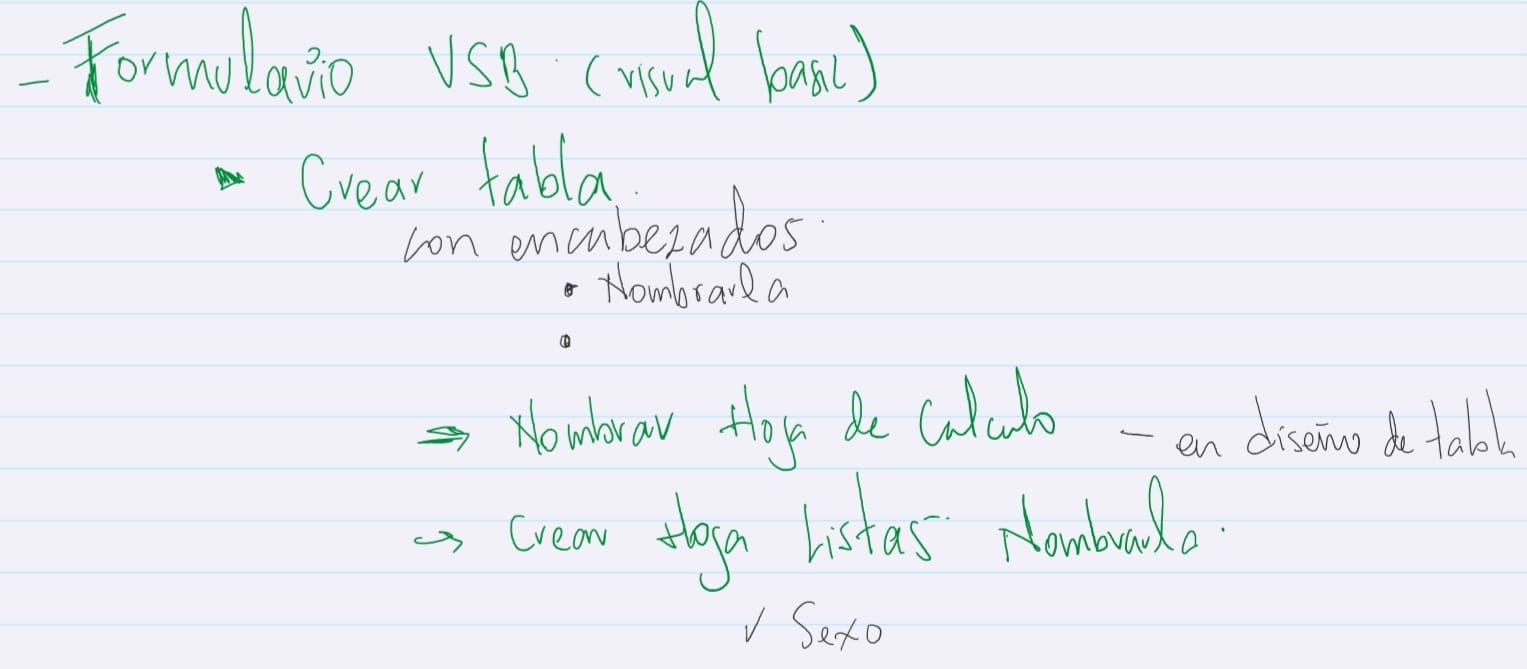 - Formulario VSB (visual basic)
Crear tabla.
con encabezados.
• Nombrarla
•
⇒ Nombrar Hoja de Calculo - en diseño de tabla
→ Crear Hoja Listas Nombrarla.
✓ Sexo